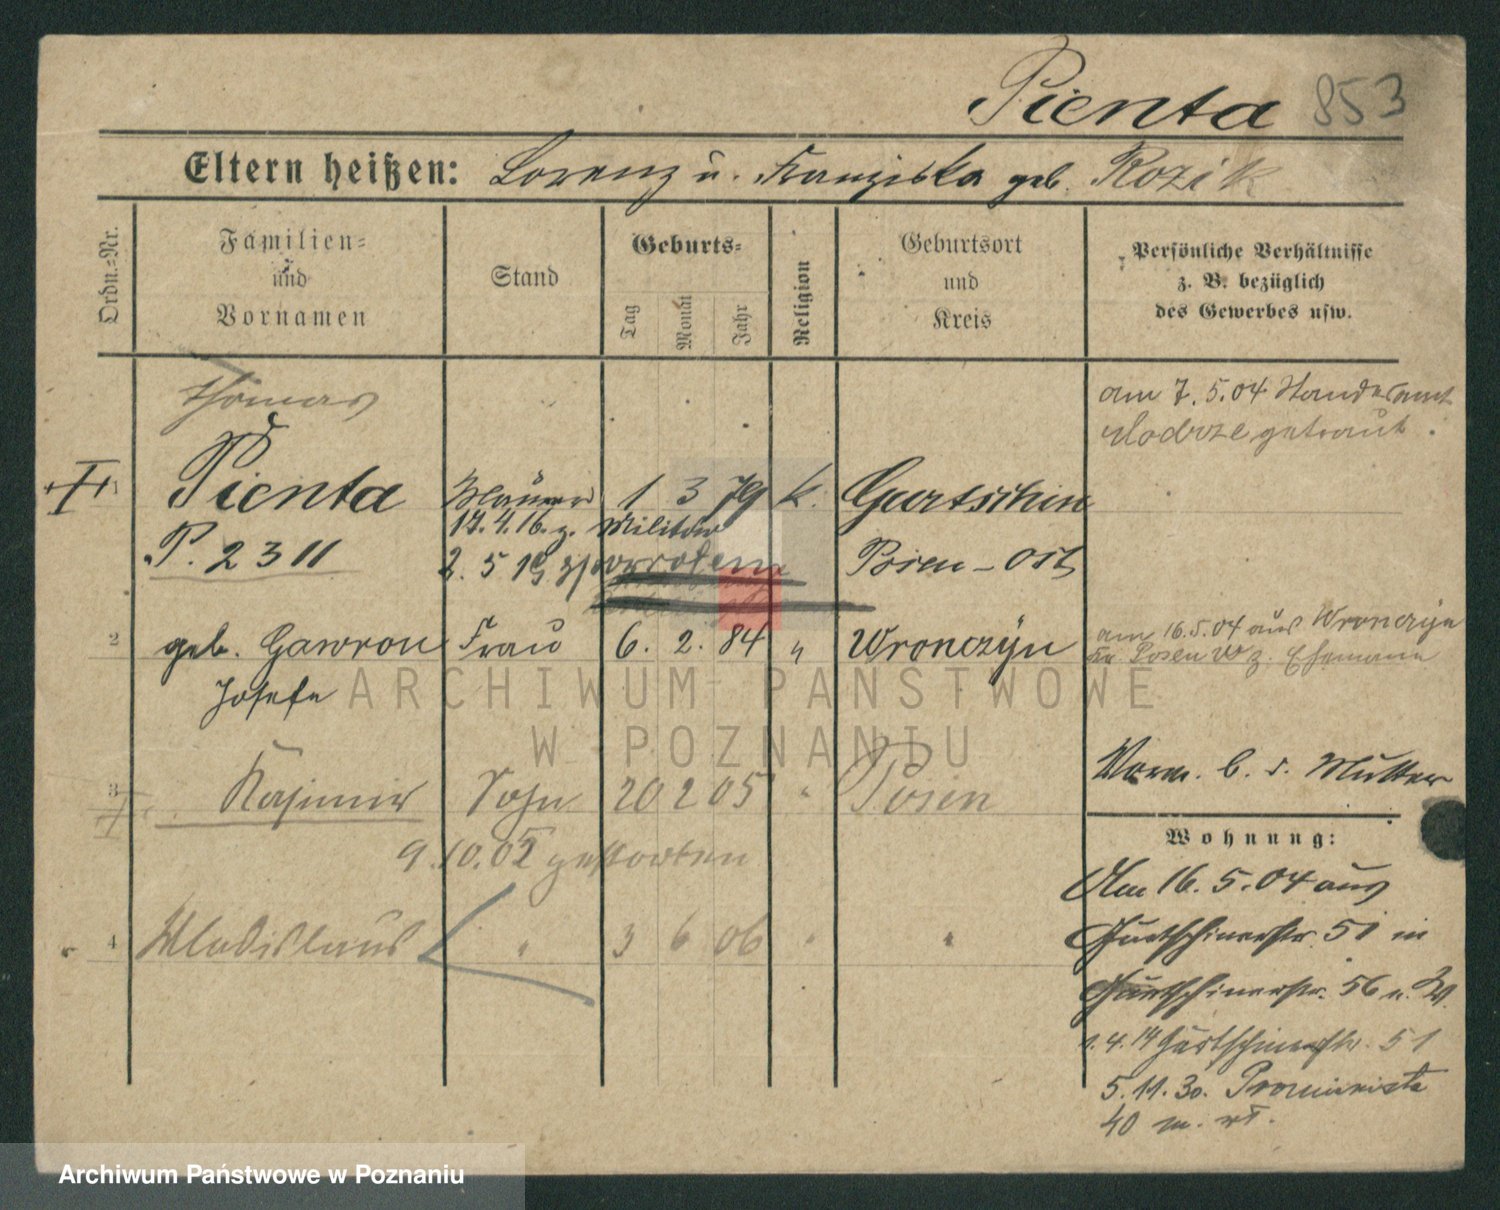 Pienta 853
Eltern heißen: Lorenz u. Franziska geb. Rozik
Ordn.-Nr.
Familien-
und
Vornamen
Stand
Geburts-
Tag
Monat
Jahr
Religion
Geburtsort
und
Kreis
Persönliche Verhältnisse
z. B. bezüglich
des Gewerbes usw.
Thomas
am 7. 5. 04 Standesamt
getraut.
Pienta 1 3 79 k. Gurtschin
17. 4. 16. z. Militär
P. 2311
2. 5 19
Posen-Ost
2 geb. Gawron Frau 6. 2. 84 " Wronczyn
Josefa
am 16.5.04 aus Wronczyn
Kr. Posen W z. Ehemann
Vorm. b. d. Mutter
3 Kasimir Sohn 20 2 05 " Posen
9.10.05 gestorben
4 Wladislaus " 3 6 06 " "
Wohnung:
Am 16. 5. 04 aus
Gurtschinerstr. 51 in
Gurtschinerstr. 56 u. W.
1. 4. 14 Gurtschinerstr. 51
5. 11. 30.
40 m.
ARCHIWUM PAŃSTWOWE
W POZNANIU
Archiwum Państwowe w Poznaniu